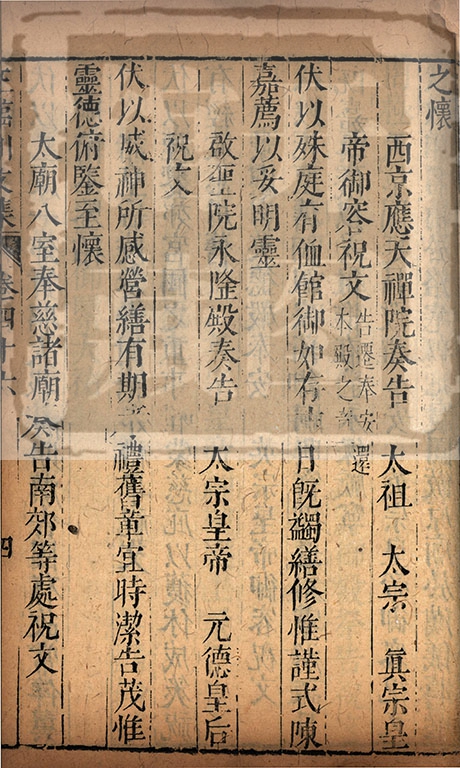 之懷
西京應天禪院奏告 太祖 太宗 眞宗皇
帝御容祝文 告遷奉安 本殿之 還
伏以殊庭有侐館御如存 日旣蠲繕修惟謹式陳
嘉薦以妥明靈
啟聖院永隆殿奏告 太宗皇帝 元德皇后
祝文
伏以威神所感營繕有期 禮舊章宜時潔告茂惟
靈德俯鑒至懷
太廟八室奉慈諸廟奏告南郊等處祝文
臨川文集 卷四十六 四